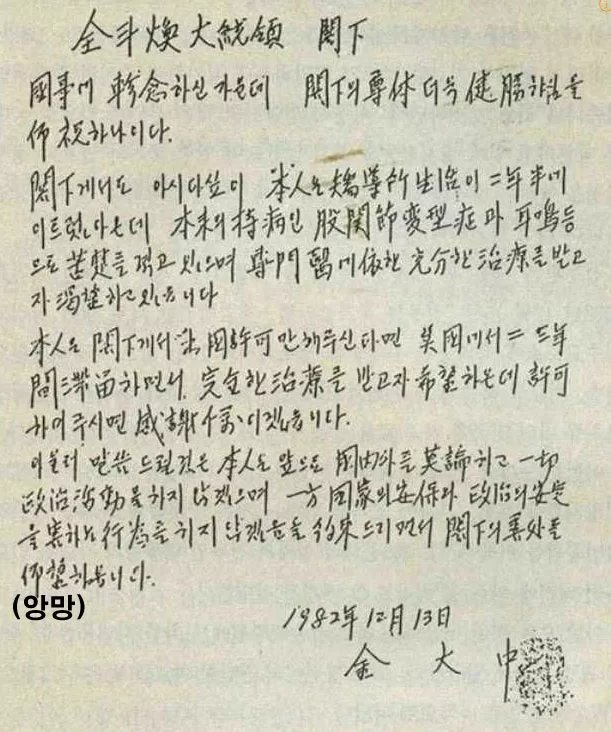 全斗煥大統領 閣下
國事에 軫念하신 가운데 閣下의 尊体 더욱 健勝하심을
仰祝하나이다.
閣下께서도 아시다싶이 本人은 矯導所 生活이 二年半에
이르렀아온데 本來의 持病인 股關節変型症과 耳鳴等
으로 苦楚를 겪고 있으며 專門醫에 依한 充分한 治療를 받고
자 渴望하고 있읍니다
本人은 閣下께서 出國許可만 해주신다면 美國에서 二 三年
間 滯留하면서 完全한 治療를 받고자 希望하온데 許可
하여 주시면 感謝千萬이겠읍니다.
아울러 말씀드릴 것은 本人은 앞으로 國內外를 莫論하고 一切
政治活動을 하지 않겠으며 一方 国家의 安保와 政治의 安定
을 害하는 行為를 하지 않겠음을 約束드리면서 閣下의 善處를
仰望하옵니다.
(앙망)
1982年 12月 13日
金 大 中